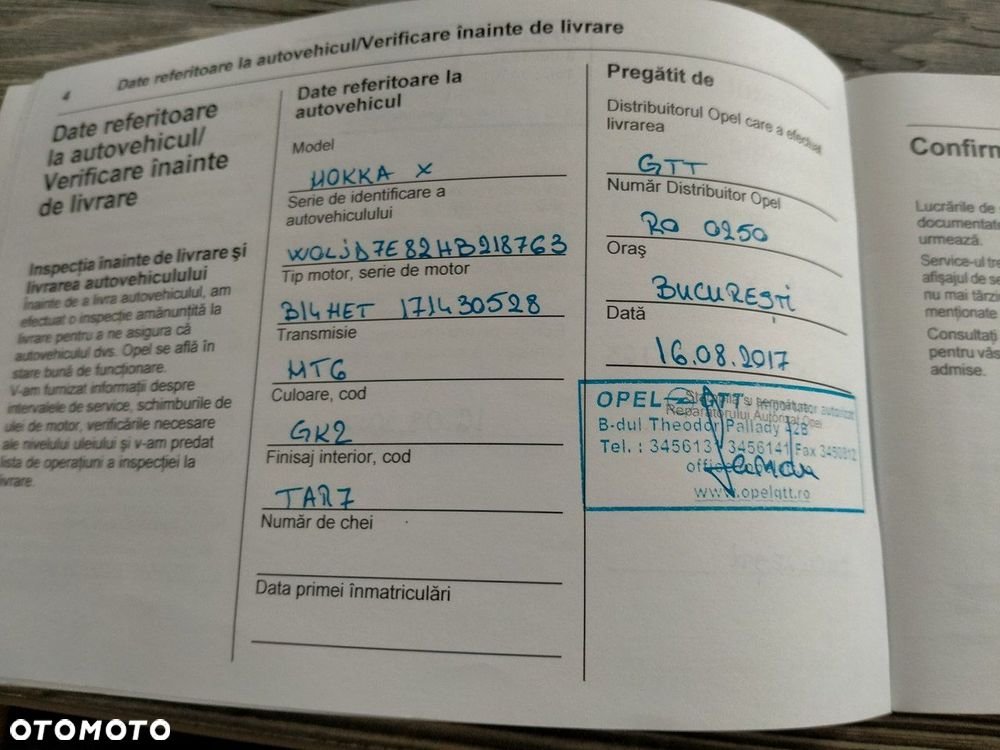 4
Date referitoare la autovehicul/Verificare înainte de livrare
Date referitoare
la autovehicul/
Verificare înainte
de livrare
Inspecția înainte de livrare și
livrarea autovehiculului
Înainte de a livra autovehiculul, am
efectuat o inspecție amănunțită la
livrare pentru a ne asigura că
autovehiculul dvs. Opel se află în
stare bună de funcționare.
V-am furnizat informații despre
intervalele de service, schimburile de
ulei de motor, verificările necesare
ale nivelului uleiului și v-am predat
lista de operațiuni a inspecției la
livrare.
Date referitoare la
autovehicul
Model
MOKKA X
Serie de identificare a
autovehiculului
WOLJD7E82HB218763
Tip motor, serie de motor
B14HET 171430528
Transmisie
MT6
Culoare, cod
GK2
Finisaj interior, cod
TAR7
Număr de chei
Data primei înmatriculări
Pregătit de
Distribuitorul Opel care a efectuat
livrarea
GTT
Număr Distribuitor Opel
RO 0250
Oraș
BUCUREȘTI
Dată
16.08.2017
Ștampila și semnătura
Reparatorului Autorizat Opel
OPEL GTT Importator autorizat
B-dul Theodor Pallady
Tel. : 345613 3456141 Fax 3450812
www.opelgtt.ro
Confirm
Lucrările de
documentate
urmează.
Service-ul tre
afișajul de se
nu mai târzi
menționate
Consultați
pentru vâs
admise.
OTOMOTO